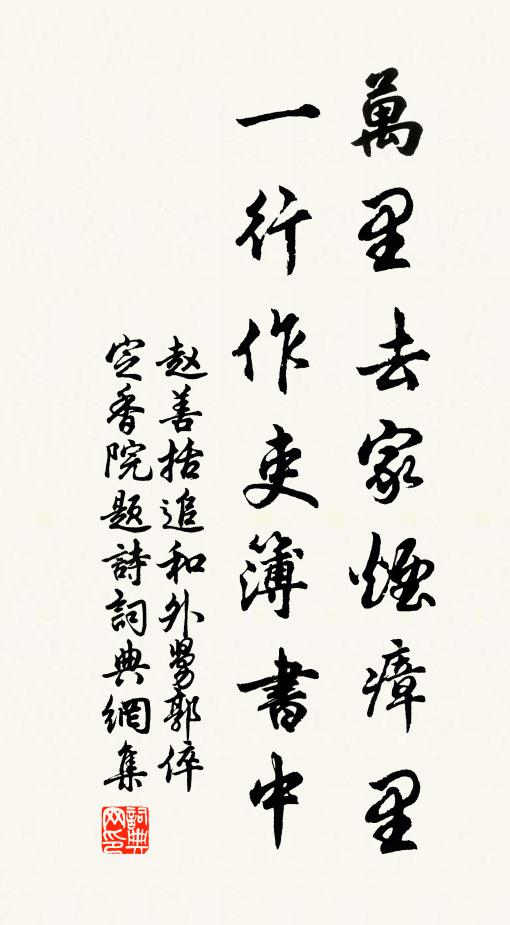 萬里去家煙瘴里
一行作吏簿書中
赵善括追和外舅郭倅
定香院題詩詞典網集
詞典
网印